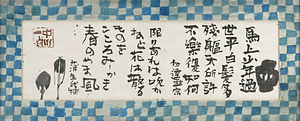 馬上少年過
世平白髪多
残軀天所許
不樂復如何
伊達政宗
限りあれば吹か
ねど花は散る
ものを
こころみじかき
春のやま風
蒲生氏郷